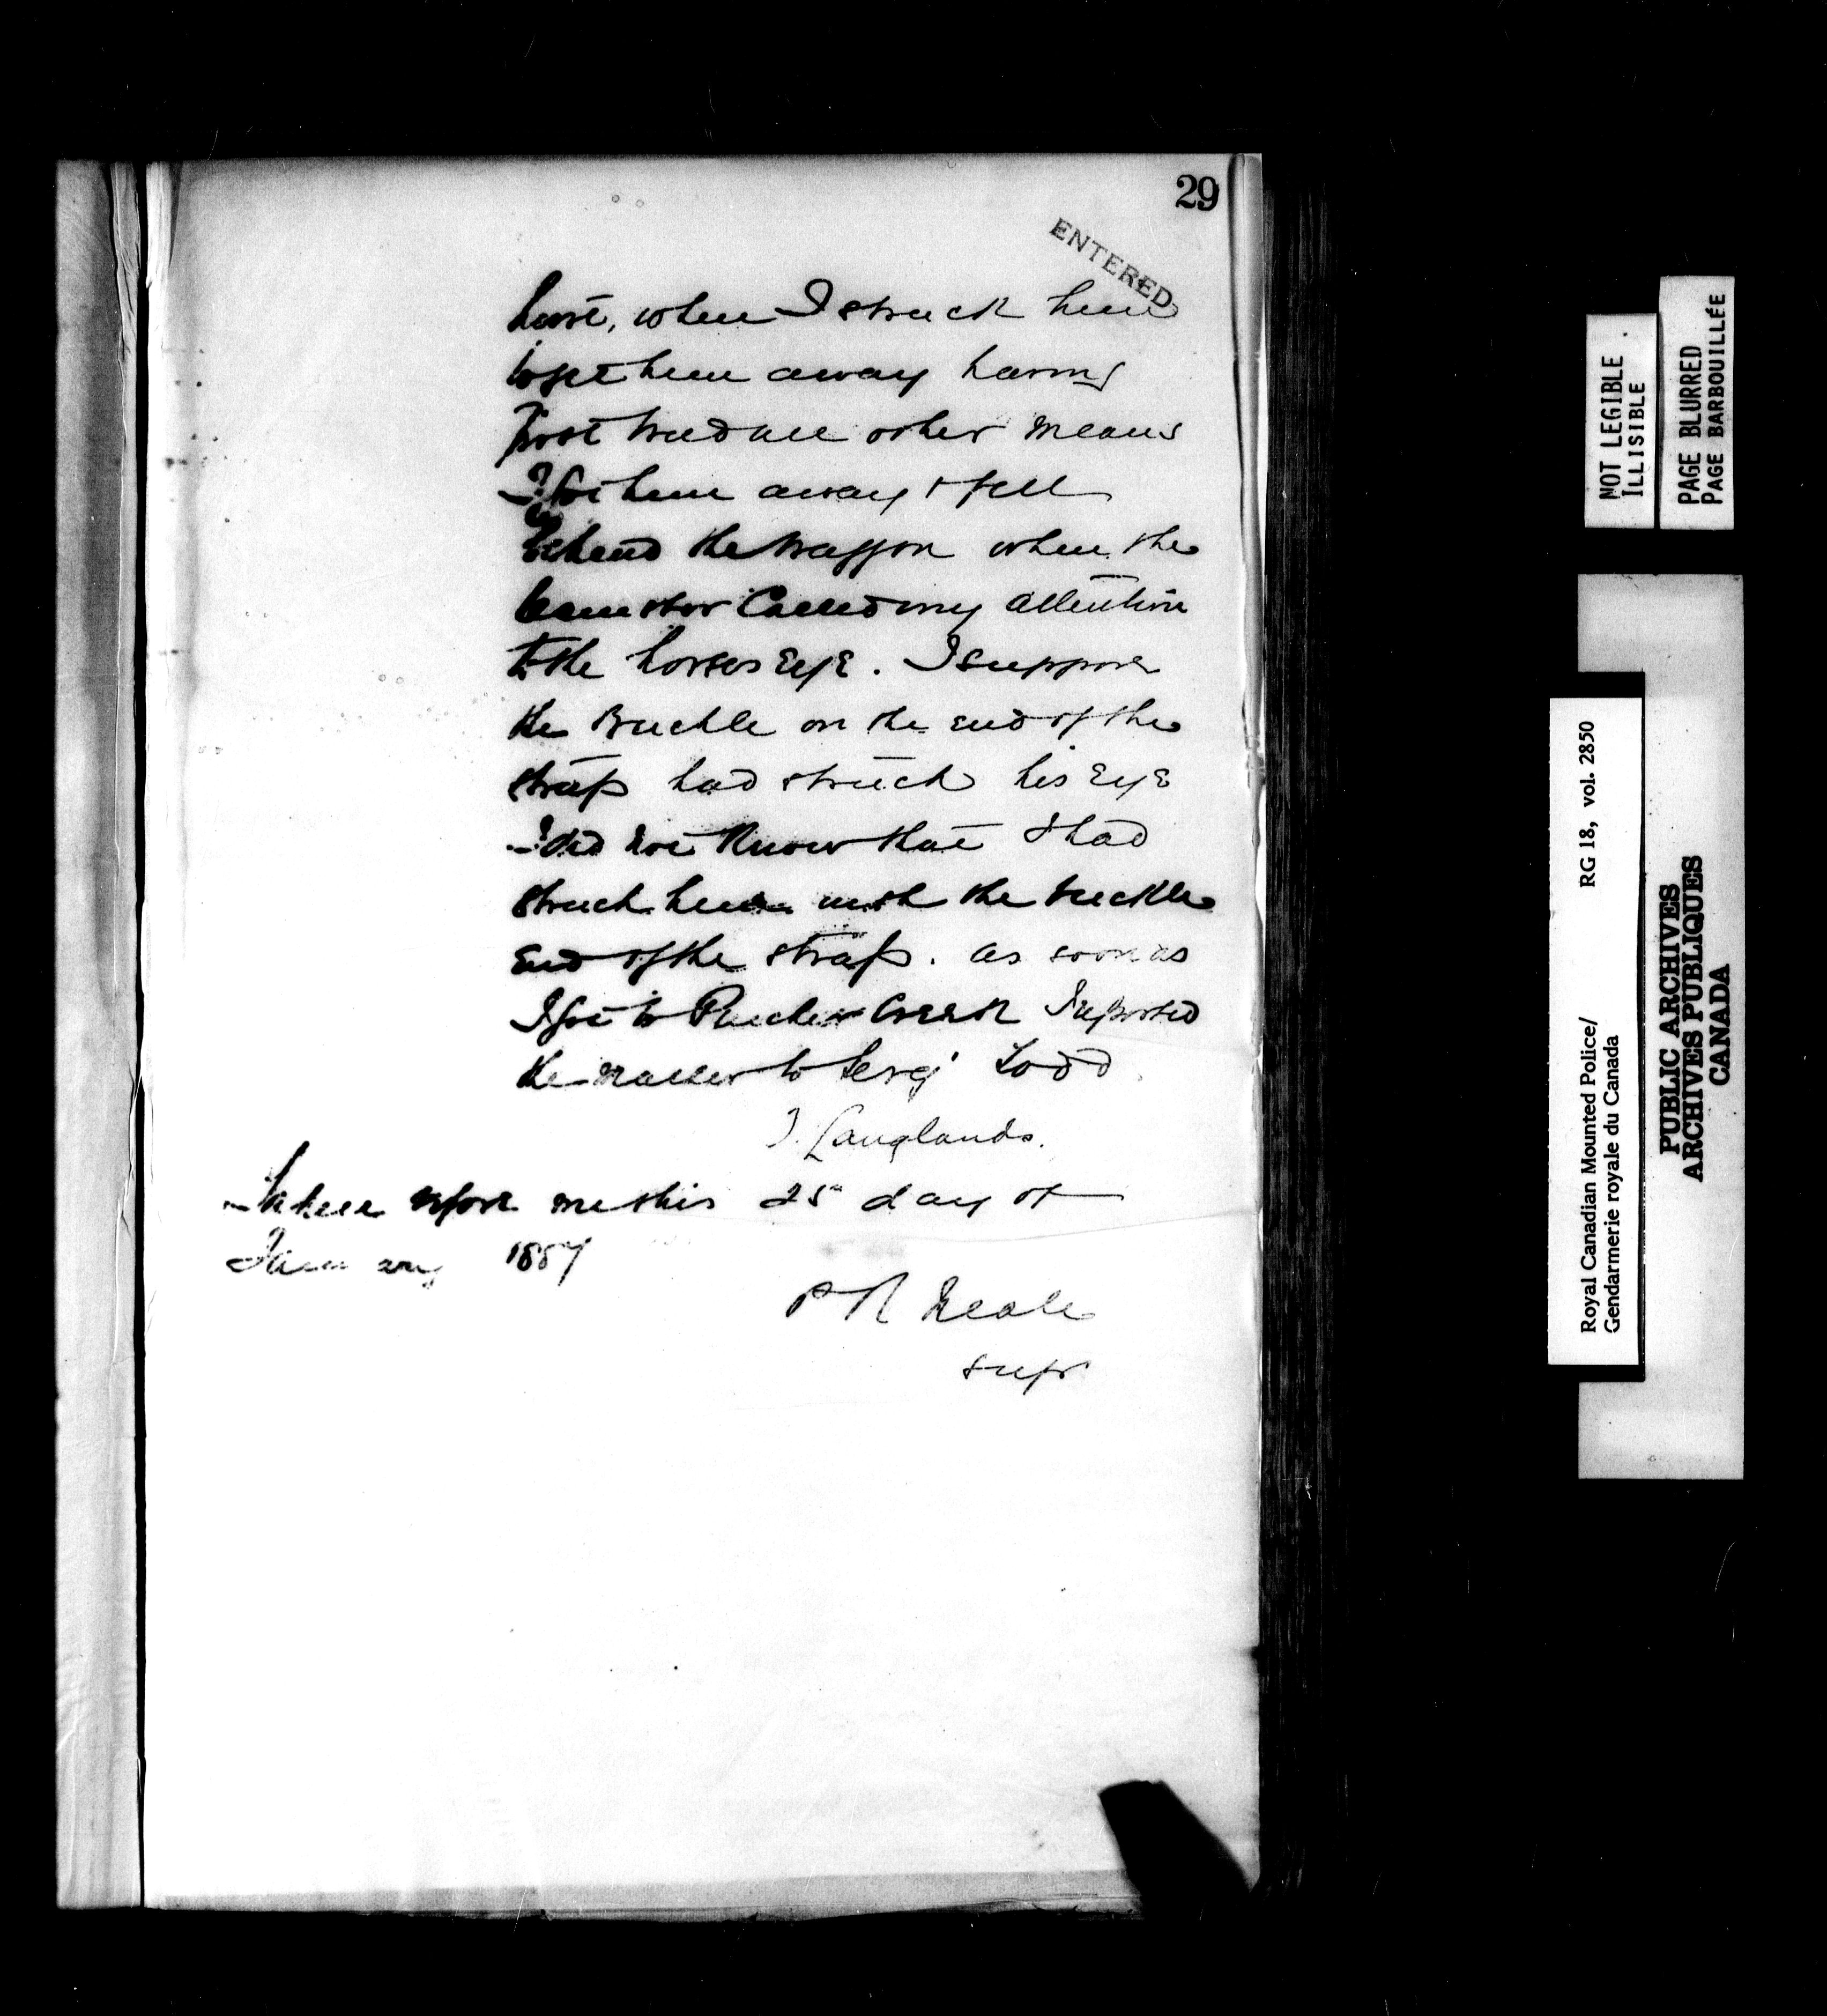 29
ENTERED
hurt, when I struck him
to get him away having
first tried all other means
I got him away & fell
behind the waggon when the
teamster called my attention
to the horses Eye. I suppose
the Buckle on the end of the
strap had struck his Eye
I did not know that I had
struck him with the buckle
end of the strap. as soon as
I got to Pincher Creek I reported
the matter to Sergt Todd
J. Langlands.
Taken before me this 25th day of
January 1887
P R Neale
Supt
NOT LEGIBLE
ILLISIBLE
PAGE BLURRED
PAGE BARBOUILLÉE
Royal Canadian Mounted Police/ RG 18, vol. 2850
Gendarmerie royale du Canada
PUBLIC ARCHIVES
ARCHIVES PUBLIQUES
CANADA